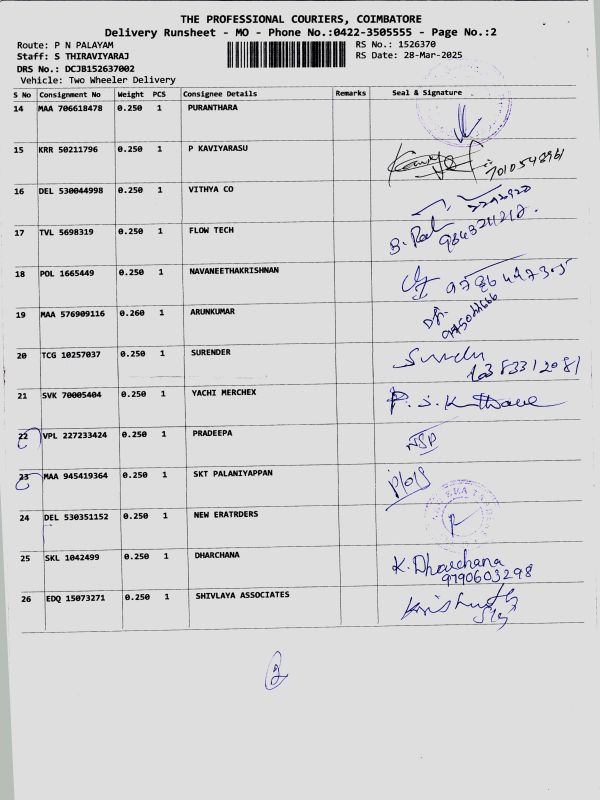 THE PROFESSIONAL COURIERS, COIMBATORE
Delivery Runsheet - MO - Phone No.:0422-3505555 - Page No.:2
Route: P N PALAYAM RS No.: 1526370
Staff: S THIRAVIYARAJ RS Date: 28-Mar-2025
DRS No.: DCJB152637002
Vehicle: Two Wheeler Delivery
S No Consignment No Weight PCS Consignee Details Remarks Seal & Signature
14 MAA 706618478 0.250 1 PURANTHARA
15 KRR 50211796 0.250 1 P KAVIYARASU
16 DEL 530044998 0.250 1 VITHYA CO
17 TVL 5698319 0.250 1 FLOW TECH
18 POL 1665449 0.250 1 NAVANEETHAKRISHNAN
19 MAA 576909116 0.260 1 ARUNKUMAR
20 TCG 10257037 0.250 1 SURENDER
21 SVK 70005404 0.250 1 YACHI MERCHEX
22 VPL 227233424 0.250 1 PRADEEPA
23 MAA 945419364 0.250 1 SKT PALANIYAPPAN
24 DEL 530351152 0.250 1 NEW ERATRDERS
25 SKL 1042499 0.250 1 DHARCHANA K. Dharchana
9790603298
26 EDQ 15073271 0.250 1 SHIVLAYA ASSOCIATES
2